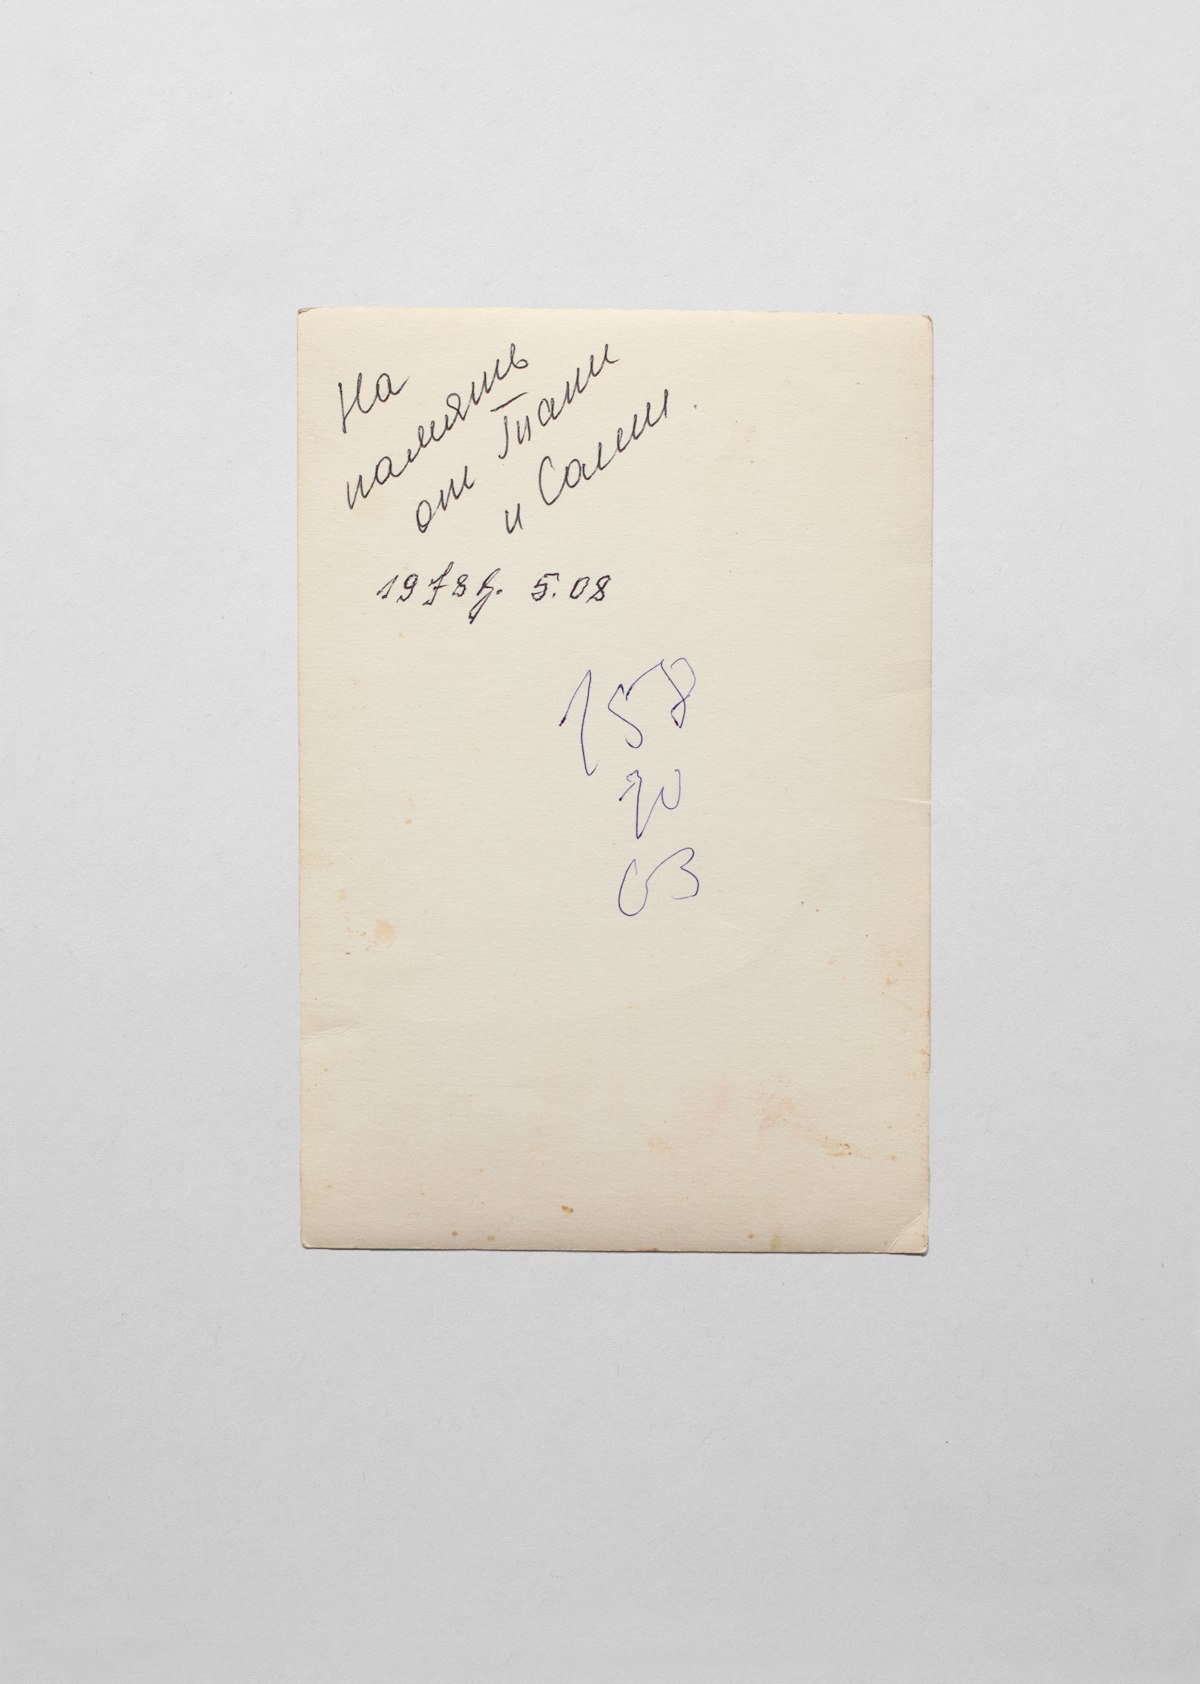 На
память
от Тани
и Саши.
1978г. 5.08
158
70
03